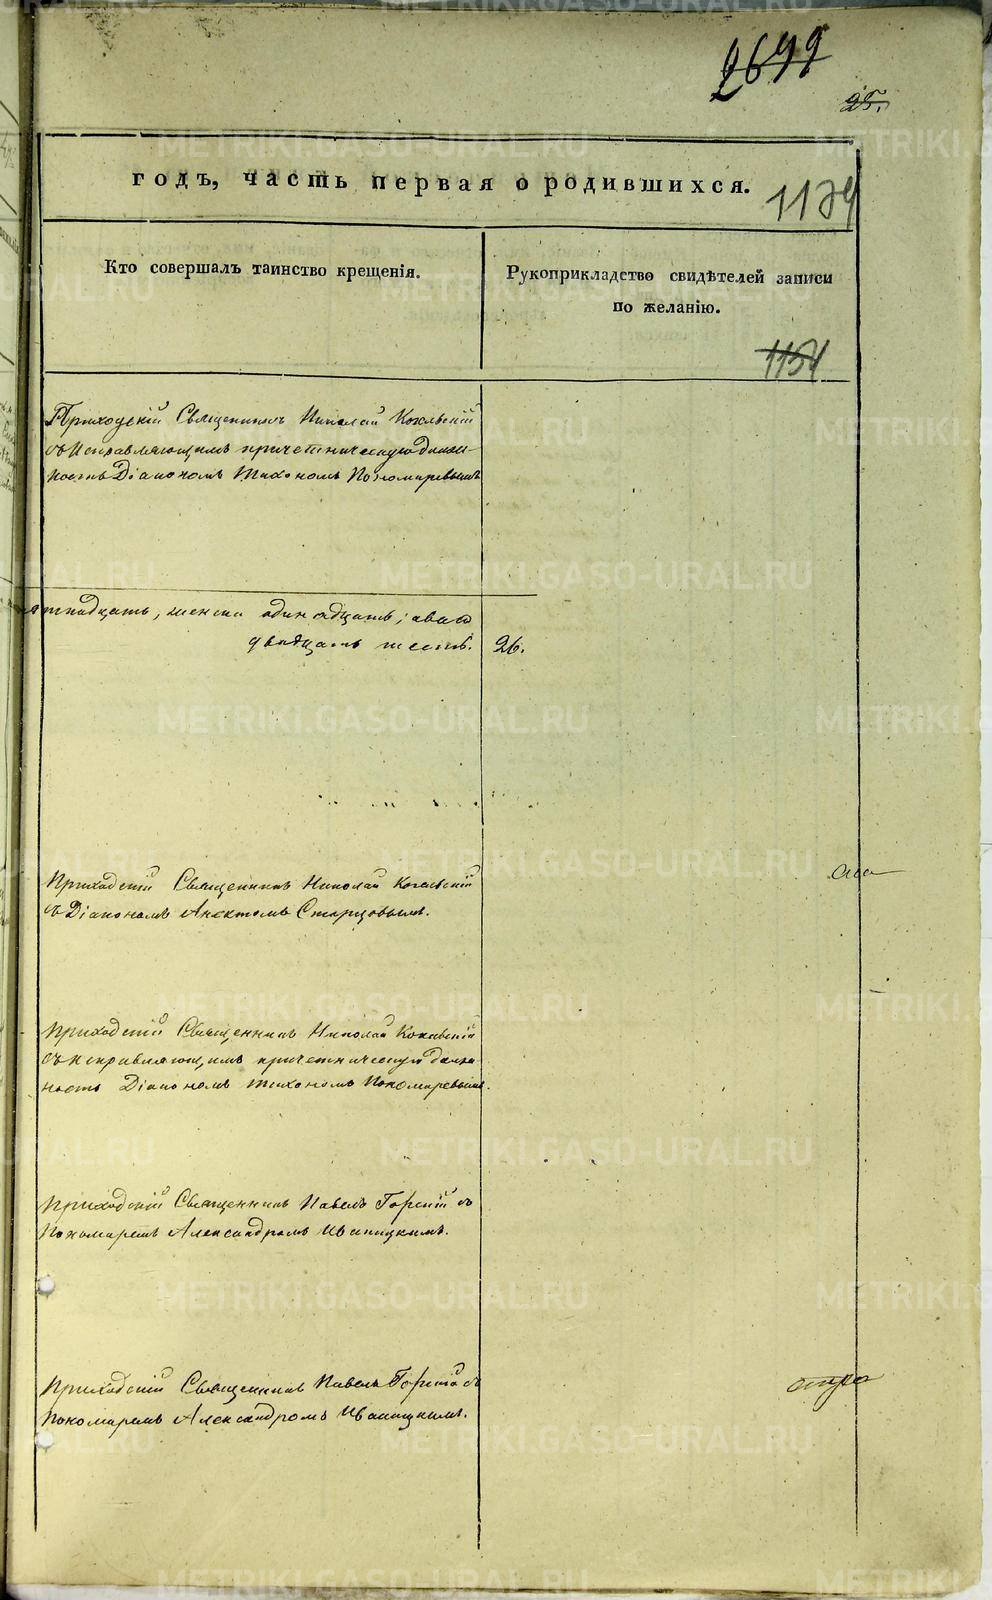 2699
25.
годъ, часть первая о родившихся.
1174
Кто совершалъ таинство крещенія.
Рукоприкладство свидѣтелей записи
по желанію.
1154
Приходскій Священникъ Николай
съ исправляющимъ причетническую долж-
ность Діакономъ Тихономъ Пономаревымъ
двадцать шесть. 26.
Приходскій Священникъ Николай
съ Діакономъ Старцовымъ.
Приходскій Священникъ Николай
съ исправляющимъ причетническую долж-
ность Діакономъ Тихономъ Пономаревымъ.
Приходскій Священникъ Павелъ Горскій съ
Пономаремъ Александромъ Иваницкимъ.
Приходскій Священникъ Павелъ Горскій съ
Пономаремъ Александромъ Иваницкимъ.
METRIKI.GASO-URAL.RU